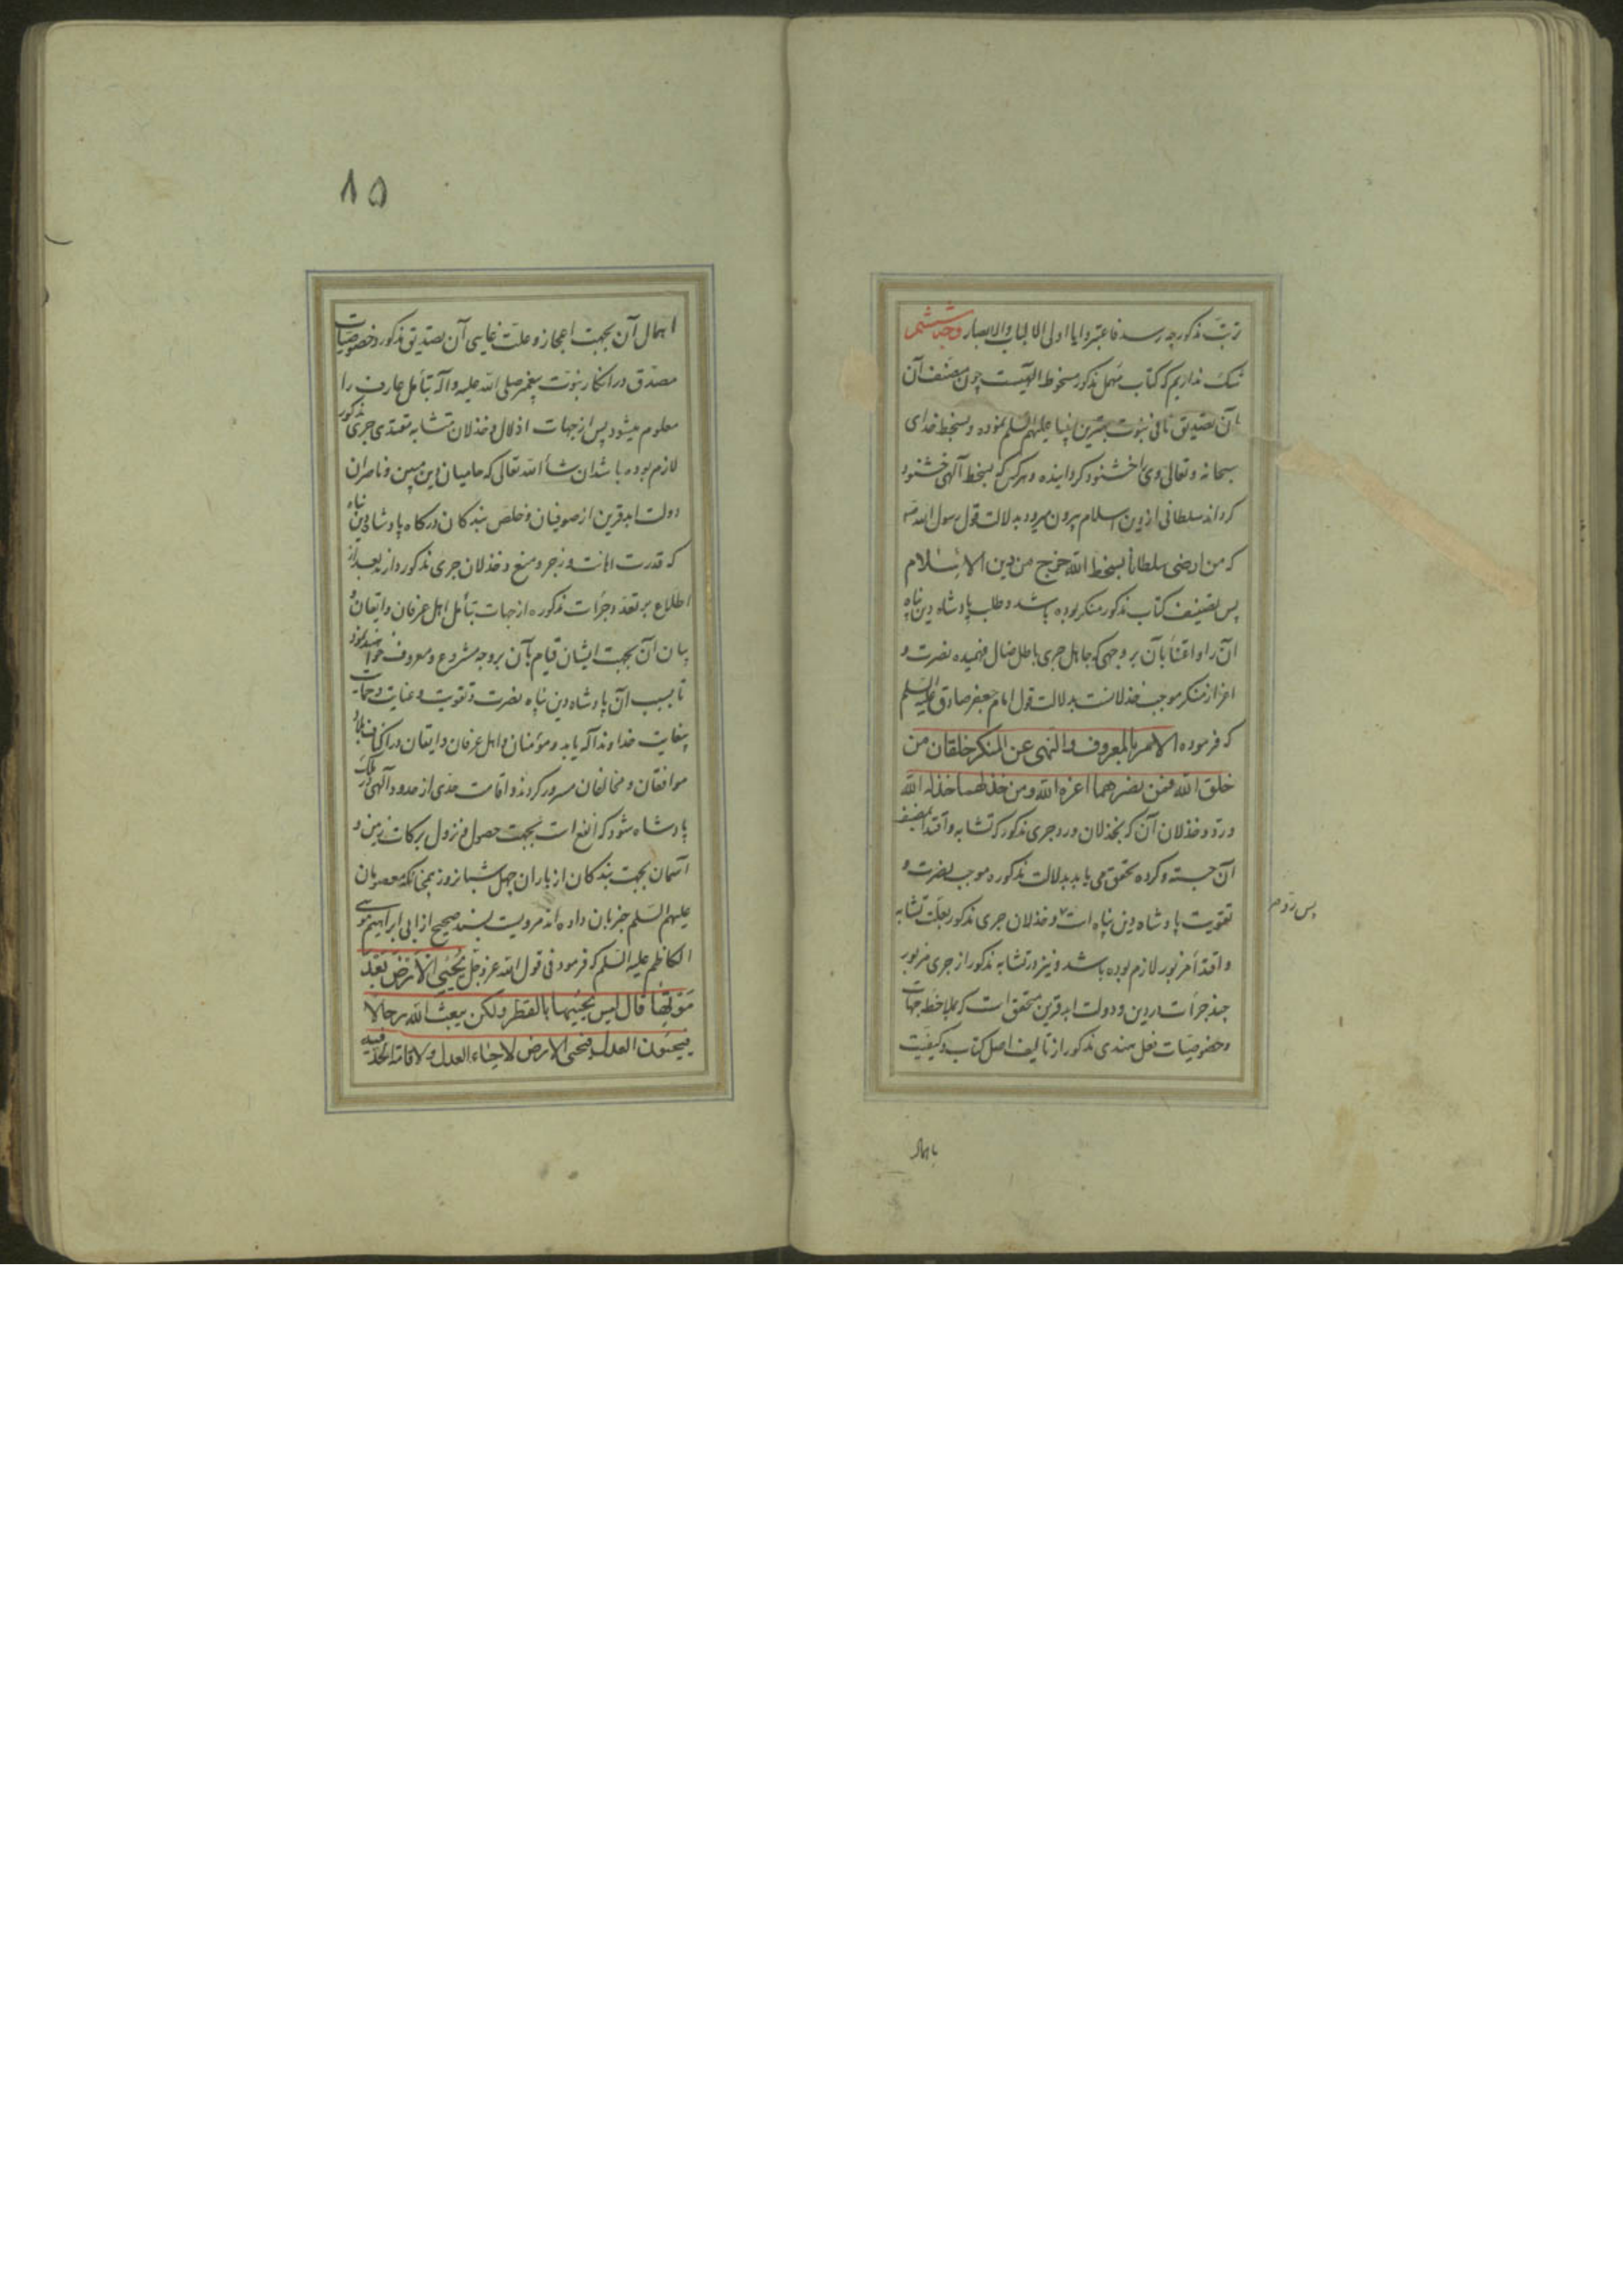 ترتب مذکور چه رسد فاعتبروا یا اولی الالباب والابصار وجه ششم
شک نداریم که کتاب مهمل مذکور مسخوط الهیست چون مصنف آن
بآن تصدیق نافی نبوت بهترین انبیا علیهم السلم نموده و بسخط خدای
سبحانه و تعالی ویرا خشنود کردانیده و هرکس که بسخط آلهی خشنود
کرداند سلطانی از دین اسلام بیرون میرود بدلالت قول رسول الله ص
که من ارضی سلطاناً بسخط الله خرج من دین الاسلام
پس تصنیف کتاب مذکور منکر بوده باشد و طلب پادشاه دین پناه
آن را و اعتنا بآن بر وجهی که جاهل جری باطل ضال فهمیده نصرت و
اعزاز منکر موجب خذلانست بدلالت قول امام جعفر صادق علیه السلم
که فرموده الامر بالمعروف والنهی عن المنکر خلقان من
خلق الله فمن نصرهما اعزه الله ومن خذلهما خذله الله
و رد و خذلان آن که بخذلان و رد جری مذکور که تشابه و اقتدا بمصنف
آن جسته و کرده تحقق می یابد بدلالت مذکوره موجب نصرت و
تقویت پادشاه دین پناه است و خذلان جری مذکور بعلت تشابه
پس رد م
و اقتدا مزبور لازم بوده باشد و نیز در تشابه مذکور از جری مزبور
چند جرأت در دین و دولت ابد قرین متحقق است که بملاحظه جهات
و خصوصیات نعل هندی مذکور از تالیف اصل کتاب و کیفیت
باهمال
۸۵
اهمال آن بجهت اعجاز و علت غایی آن تصدیق مذکور و خصوصیات
مصدق در انکار نبوت پیغمبر صلی الله علیه وآله بتأمل عارف را
معلوم میشود پس از جهات اذلال و خذلان متشابه مقتدی جری مذکور
لازم بوده باشد ان شأ الله تعالی که حامیان دین مبین و ناصران
دولت ابد قرین از صوفیان و خلص بندکان درکاه پادشاه دین پناه
که قدرت اهانت و زجر و منع و خذلان جری مذکور دارند بعد از
اطلاع بر تعدد جرأت مذکوره از جهات بتأمل اهل عرفان و ایقان و
بیان آن بجهت ایشان قیام بآن بر وجه مشروع و معروف خواهند نمود
تا بسبب آن پادشاه دین پناه نصرت و تقویت و عنایت و حمایت
بیغایت خداوند اکه یابد و مؤمنان و اهل عرفان و ایقان در اکناف بلاد
موافقان و مخالفان مسرور کردند و اقامت حدی از حدود آلهی در ملک
پادشاه شود که انفع است بجهت حصول و نزول برکات زمین و
آسمان بجهت بندکان از باران چهل شبانروز چنانکه معصومان
علیهم السلم خبر بآن داده اند مرویست بسند صحیح از ابی ابراهیم موسی
الکاظم علیه السلم که فرمود فی قول الله عز وجل یُحْیِی الْاَرْضَ بَعْدَ
مَوْتِها قال لیس یحییها بالقطر ولکن یبعث الله رجالا
فیحیون العدل فتحیی الارض لاحیاء العدل ولاقامة الحد فیه